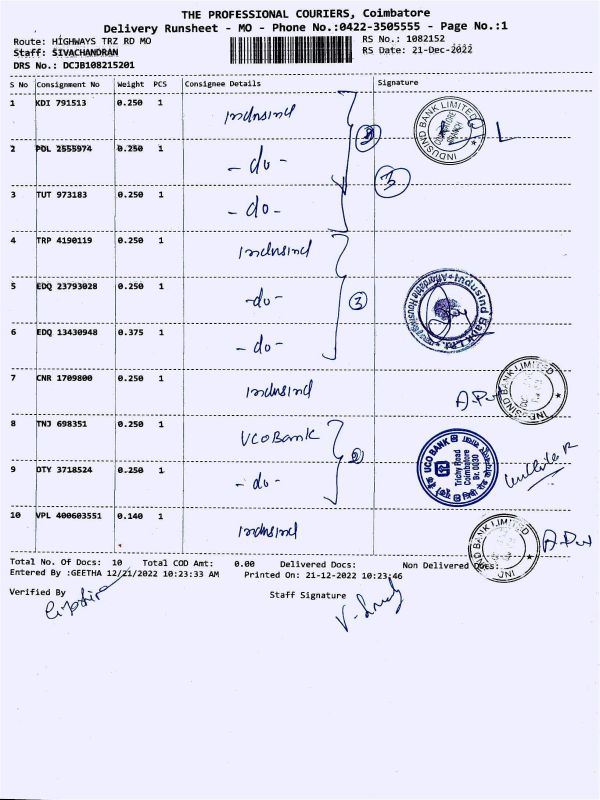 THE PROFESSIONAL COURIERS, Coimbatore
Delivery Runsheet - MO - Phone No.:0422-3505555 - Page No.:1
Route: HIGHWAYS TRZ RD MO
RS No.: 1082152
Staff: SIVACHANDRAN
RS Date: 21-Dec-2022
DRS No.: DCJB108215201
S No Consignment No Weight PCS Consignee Details Signature
1 KDI 791513 0.250 1 Indusind
INDUSIND BANK LIMITED
COIMBATORE
BRANCH
2 POL 2555974 0.250 1 - do -
3
3 TUT 973183 0.250 1 - do -
4 TRP 4190119 0.250 1 Indusind
5 EDQ 23793028 0.250 1 - do -
3
IndusInd Bank Ltd.
Affordable Housing
6 EDQ 13430948 0.375 1 - do -
7 CNR 1709800 0.250 1 Indusind
INDUSIND BANK LIMITED
8 TNJ 698351 0.250 1 UCO Bank
2
UCO BANK
Trichy Road
Coimbatore
Br. 0030
9 OTY 3718524 0.250 1 - do -
10 VPL 400603551 0.140 1 Indusind
IND BANK LIMITED
Total No. Of Docs: 10 Total COD Amt: 0.00 Delivered Docs: Non Delivered Docs:
Entered By :GEETHA 12/21/2022 10:23:33 AM Printed On: 21-12-2022 10:23:46
Verified By
Staff Signature